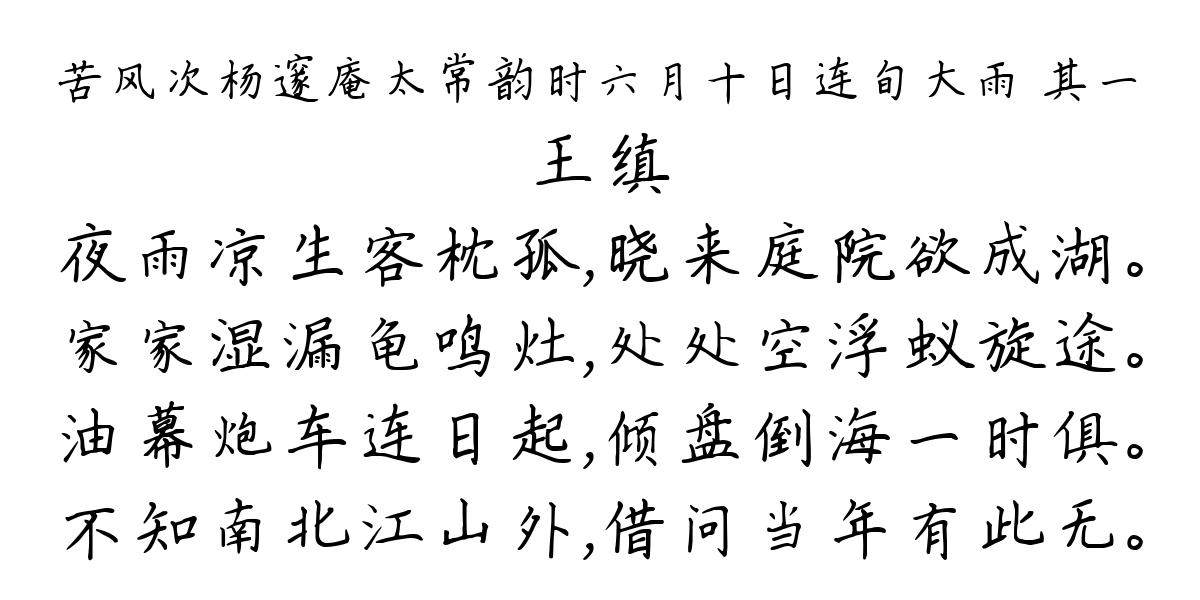 苦风次杨邃庵太常韵时六月十日连旬大雨 其一
王缜
夜雨凉生客枕孤,晓来庭院欲成湖。
家家湿漏龟鸣灶,处处空浮蚁旋途。
油幕炮车连日起,倾盘倒海一时俱。
不知南北江山外,借问当年有此无。